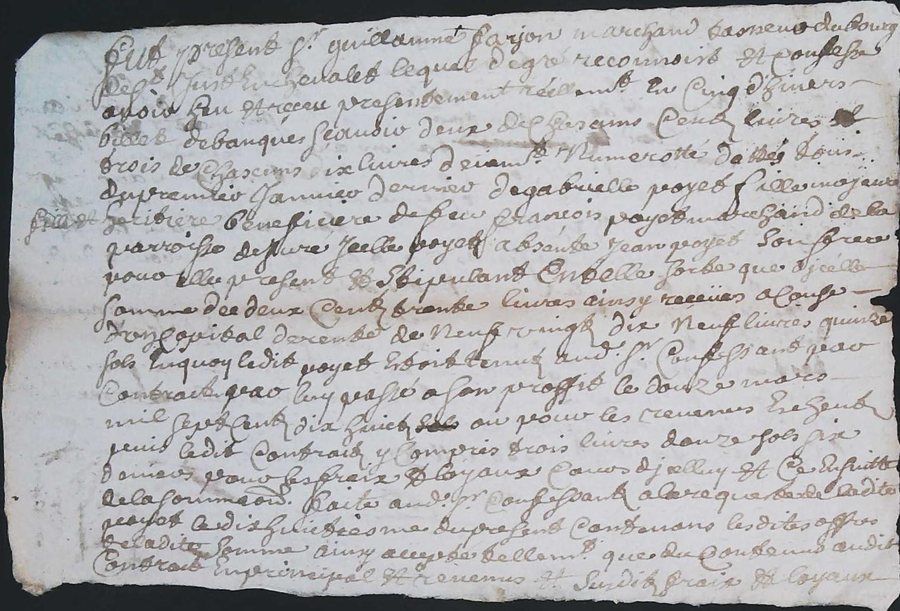 Fut present Sr guillaume farjon marchand tasneur du bourg
de St Just En chevalet lequel de gré reconnoist et confesse
avoir heu et receu presentement reellemt En Cinq divers
billets de banque scavoir deux de chascuns Cent livres et
trois de chascuns dix livres deuemt Numerotté datté tous
du premier Janvier dernier de gabrielle poyet fille majeure
heritière beneficiere de feu francois poyet marchand de la
parroisse de Jure Icelle poyet absente Jean poyet son frere
pour elle present et stipulant En telle sorte que a jcelle
somme de deux Cent trente livres ainsy receües a Cause
d'un Capital de rente de Neuf vingt dix Neuf livres quinze
sols En quoy ledit poyet Estoit tenu aud. Sr Confessant par
Contrait par luy passé a son proffit le douze mars
mil sept Cent dix huict ou pour les revenus Escheus
puis ledit Contrait y Compris trois livres douze sols six
deniers pour les fraix et loyaux Cours djcelluy et Ce Ensuitte
de la sommaon faite aud. Sr Confessant a la requeste de ladite
poyet le dix huictiesme du present Contenans lesdites offres
de ladite somme ainsy accepté tellemt que du Contenu audit
Contrait En principal et revenus et susdits fraix et loyaux